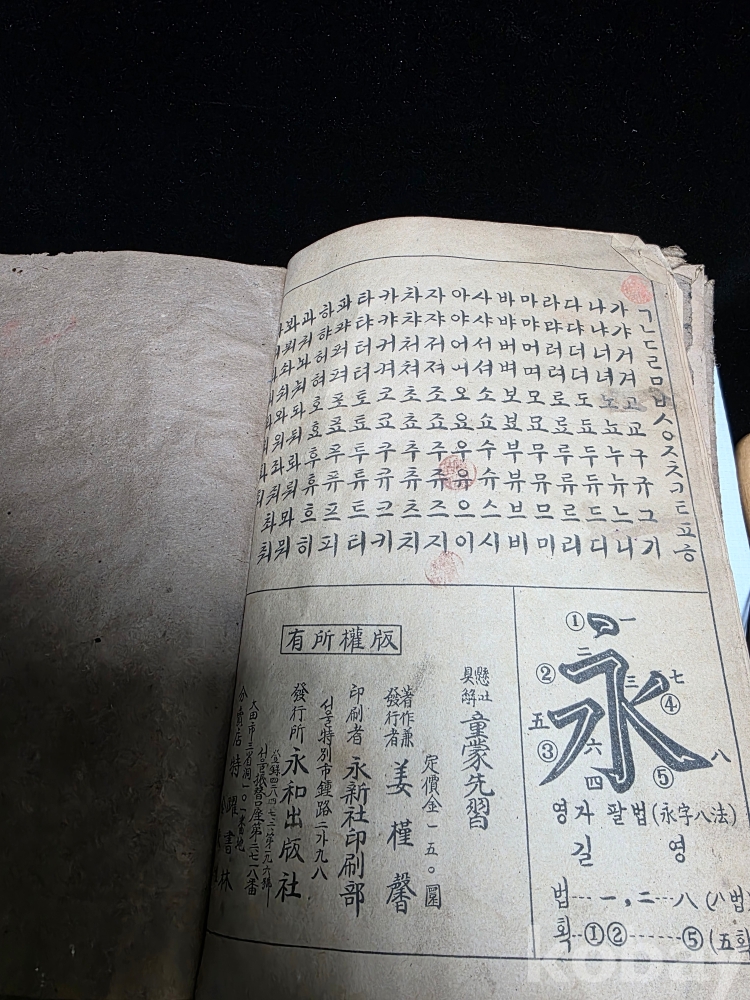 ㄱㄴㄷㄹㅁㅂㅅㅇㅈㅊㅋㅌㅍㅎ
가갸거겨고교구규그기
나냐너녀노뇨누뉴느니
다댜더뎌도됴두듀드디
라랴러려로료루류르리
마먀머며모묘무뮤므미
바뱌버벼보뵤부뷰브비
사샤서셔소쇼수슈스시
아야어여오요우유으이
자쟈저져조죠주쥬즈지
차챠처쳐초쵸추츄츠치
카캬커켜코쿄쿠큐크키
타탸터텨토툐투튜트티
파퍄퍼펴포표푸퓨프피
하햐허혀호효후휴흐히
과궈놔눠돠둬롸뤄뫄뭐
봐붜솨숴와워좌줘촤춰
永
① ② ③ ④ ⑤
一 二 三 四 五 六 七 八
영자 팔법 (永字八法)
길 영
법…一, 二…八 (八법)
획…①②……⑤ (五획
版權所有
懸吐具解 童蒙先習
定價金一五〇圜
著作兼發行者 姜槿馨
印刷者 永新社印刷部
서울特別市鍾路二가九八
發行所 永和出版社
登錄四二八四·七·三一 第一九六號
서울振替口座第二七二八番
大田市三省洞一〇一番地
分賣店特約 曜書林